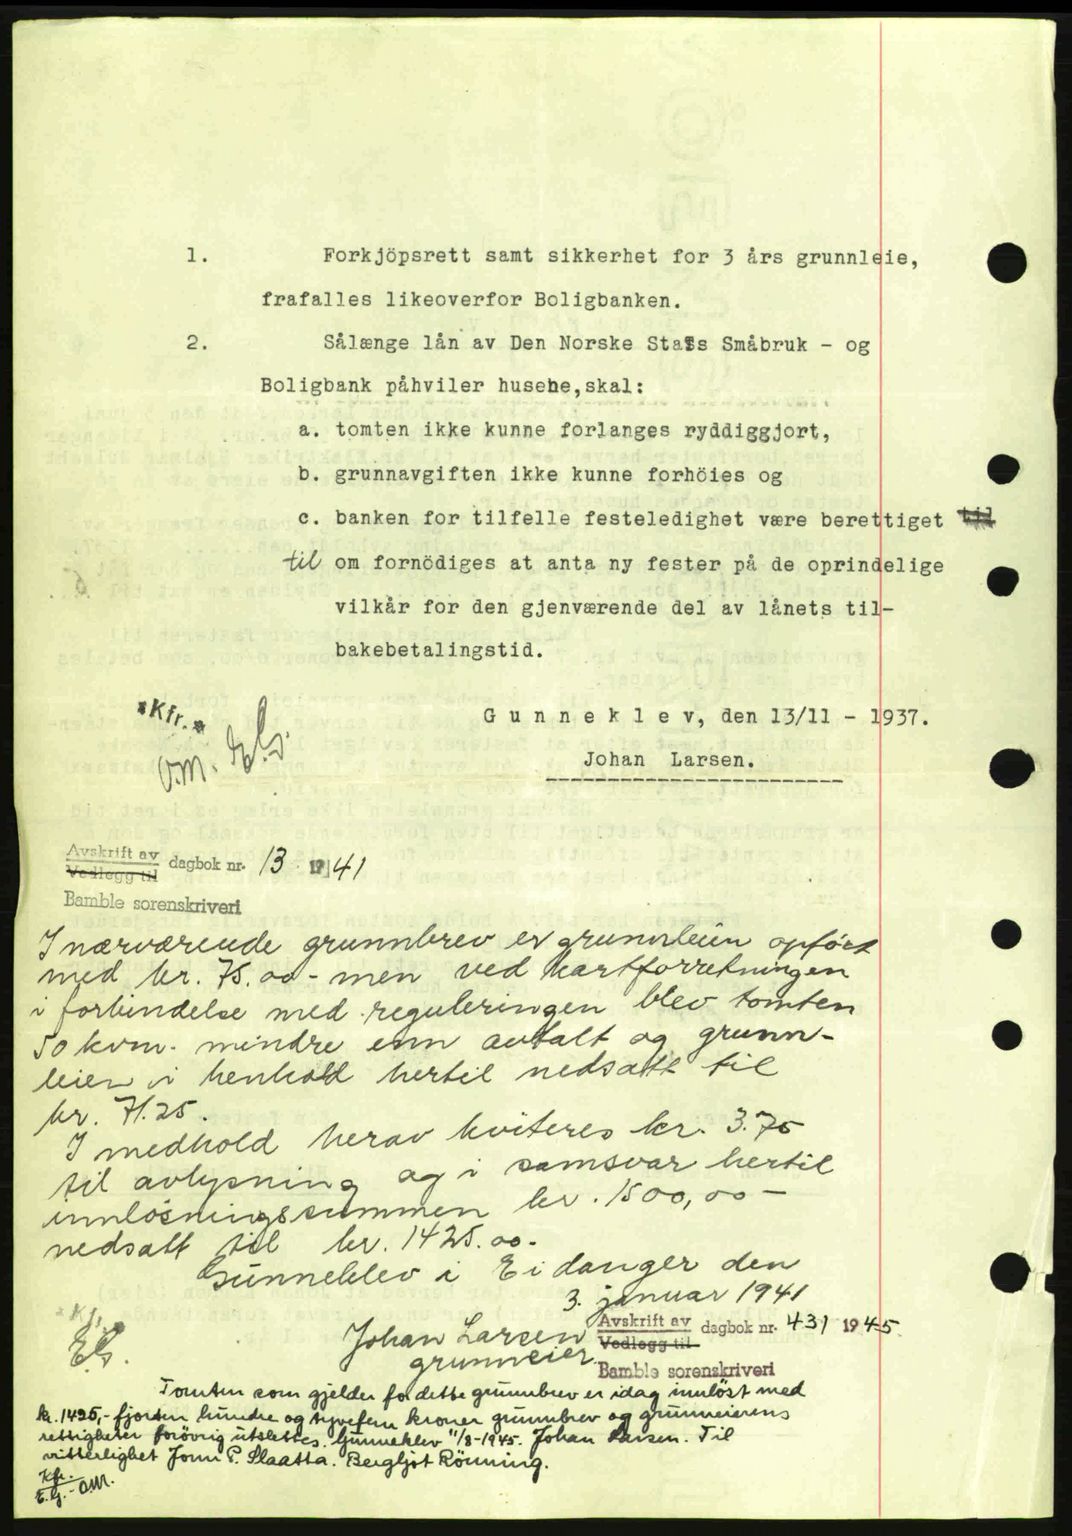 1. Forkjöpsrett samt sikkerhet for 3 års grunnleie,
frafalles likeoverfor Boligbanken.
2. Sålænge lån av Den Norske Stats Småbruk - og
Boligbank påhviler husene,skal:
a. tomten ikke kunne forlanges ryddiggjort,
b. grunnavgiften ikke kunne forhöies og
c. banken for tilfelle festeledighet være berettiget til
til om fornödiges at anta ny fester på de oprindelige
vilkår for den gjenværende del av lånets til-
bakebetalingstid.
*Kfr.*
G u n n e k l e v, den 13/11 - 1937.
O.M. E.G.
Johan Larsen.
Avskrift av
Vedlegg til dagbok nr. 13 1941
Bamble sorenskriveri
I nærværende grunnbrev er grunnleien opført
med kr. 75.00 - men ved kartforretningen
i forbindelse med reguleringen blev tomten
50 kvm. mindre enn avtalt og grunn-
leien i henhold hertil nedsatt til
kr. 71.25.
I medhold herav kviteres kr. 3.75
til avlysning og i samsvar hertil
innløsningssummen kr. 1500,00 -
nedsatt til kr. 1425.00.
Gunneklev i Eidanger den
3. januar 1941
*Kfr.*
E.G.
Johan Larsen
grunneier.
Avskrift av
Vedlegg til dagbok nr. 431 1945.
Bamble sorenskriveri
Tomten som gjelder for dette grunnbrev er idag innløst med
kr. 1425,- fjorten hundre og tyvefem kroner grunnbrev og grunneierens
rettigheter forövrig utslettes. Gunneklev 11/8-1945. Johan Larsen. Til
vitterlighet Jonn P. Slaatta. Bergljot Rönning.
Kfr.
E.G. - OM.